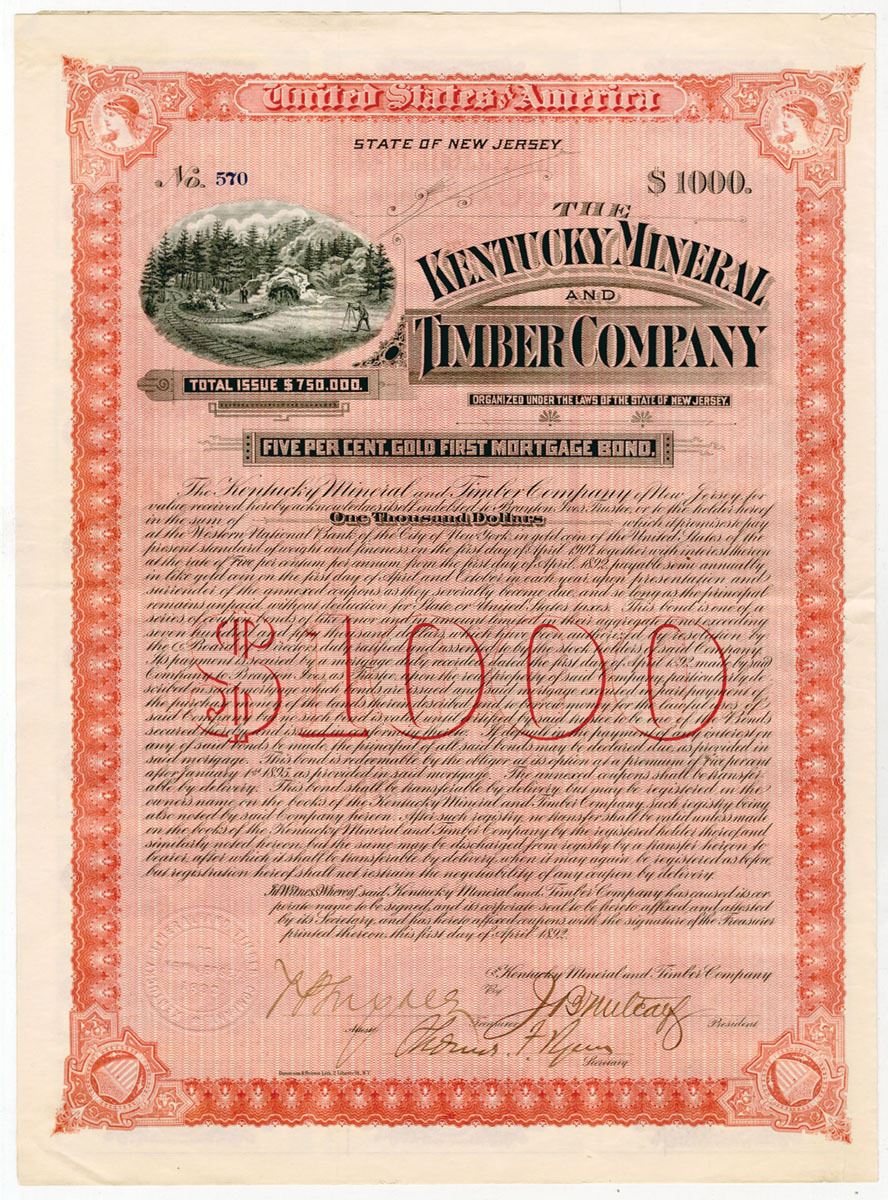 United States of America
STATE OF NEW JERSEY.
No. 570
$ 1000.
THE
KENTUCKY MINERAL
AND
TIMBER COMPANY
TOTAL ISSUE $750.000.
ORGANIZED UNDER THE LAWS OF THE STATE OF NEW JERSEY.
FIVE PER CENT. GOLD FIRST MORTGAGE BOND.
The Kentucky Mineral and Timber Company of New Jersey for
value received hereby acknowledges itself indebted to Brayton Ives, Trustee, or to the holder hereof
in the sum of One Thousand Dollars which it promises to pay
at the Western National Bank of the City of New York in gold coin of the United States of the
present standard of weight and fineness on the first day of April 1907, together with interest thereon
at the rate of Five per centum per annum from the first day of April, 1892, payable semi annually,
in like gold coin on the first day of April and October in each year upon presentation and
surrender of the annexed coupons as they severally become due, and so long as the principal
remains unpaid, without deduction for State or United States taxes. This bond is one of a
series of bonds of like and in the aggregate not exceeding
seven hundred and fifty thousand dollars which by resolution by
the Board of Directors duly and assented to by the stockholders of said Company.
Its payment is secured by a mortgage duly recorded dated the first day of April 1892, made by said
Company to Brayton Ives, as Trustee, upon the real property of said Company particularly de-
scribed in said mortgage which bonds are issued and said mortgage executed in part payment of
the purchase money of the lands therein described and to borrow money for the lawful uses of
said Company by no such bond is valid until certified by said Trustee to be one of the Bonds
secured thereby and is If default in the payment of interest on
any of said bonds be made, the principal of all said bonds may be declared due, as provided in
said mortgage. This bond is redeemable by the obligor at its option at a premium of five percent
after January 1st 1895 as provided in said mortgage. The annexed coupons shall be transfer-
able by delivery. This bond shall be transferable by delivery, but may be registered in the
owners name on the books of the Kentucky Mineral and Timber Company, such registry being
also noted by said Company hereon. After such registry, no transfer shall be valid unless made
on the books of the Kentucky Mineral and Timber Company by the registered holder thereof and
similarly noted hereon, but the same may be discharged from registry by a transfer hereon to
bearer, after which it shall be transferable by delivery, when it may again be registered as before,
but registration hereof shall not restrain the negotiability of any coupon by delivery.
$1000
In Witness Whereof, said Kentucky Mineral and Timber Company has caused its cor-
porate name to be signed, and its corporate seal to be hereto affixed and attested
by its Secretary, and has hereto affixed coupons with the signature of the Treasurer
printed thereon, this first day of April 1892.
Kentucky Mineral and Timber Company
By
J B Metcalf
President
Treasurer
Attest
Thomas F. Ryan
Secretary